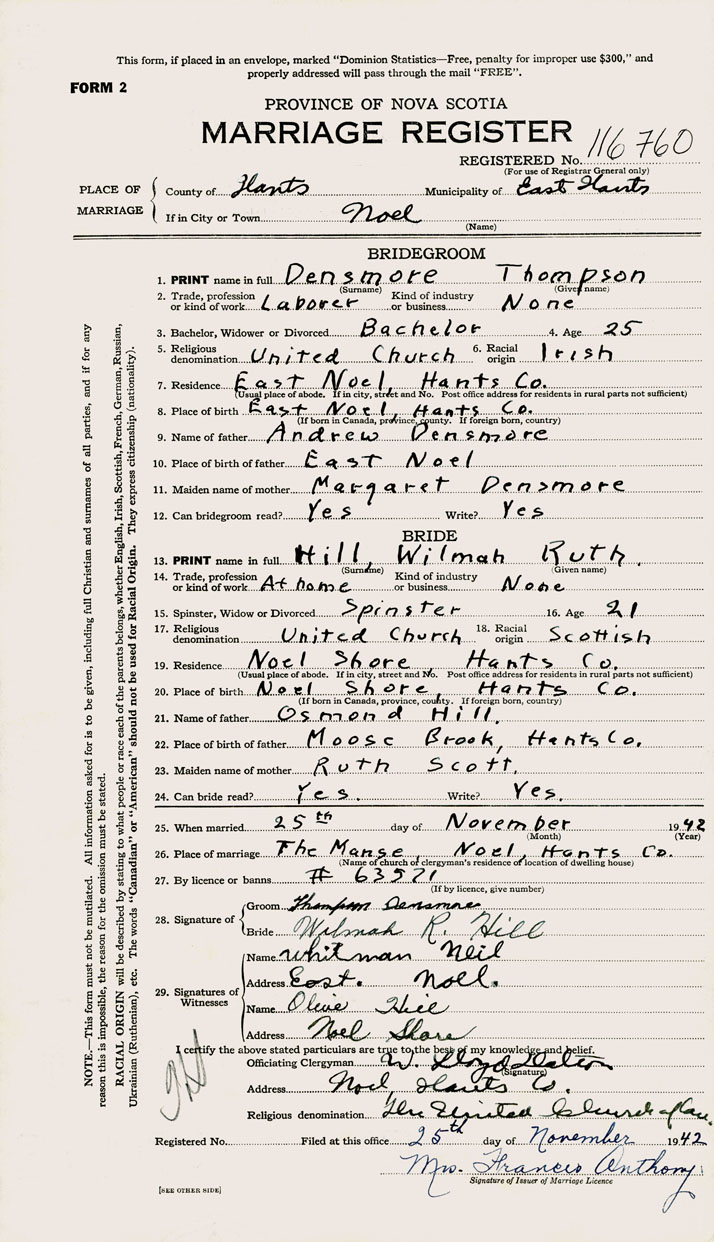 This form, if placed in an envelope, marked “Dominion Statistics—Free, penalty for improper use $300,” and
properly addressed will pass through the mail “FREE”.
FORM 2
PROVINCE OF NOVA SCOTIA
MARRIAGE REGISTER
REGISTERED No. 116760
(For use of Registrar General only)
PLACE OF MARRIAGE
County of Hants Municipality of East Hants
If in City or Town Noel
(Name)
BRIDEGROOM
1. PRINT name in full Densmore Thompson
(Surname) (Given name)
2. Trade, profession or kind of work Laborer Kind of industry or business None
3. Bachelor, Widower or Divorced Bachelor 4. Age 25
5. Religious denomination United Church 6. Racial origin Irish
7. Residence East Noel, Hants Co.
(Usual place of abode. If in city, street and No. Post office address for residents in rural parts not sufficient)
8. Place of birth East Noel, Hants Co.
(If born in Canada, province, county. If foreign born, country)
9. Name of father Andrew Densmore
10. Place of birth of father East Noel
11. Maiden name of mother Margaret Densmore
12. Can bridegroom read? Yes Write? Yes
BRIDE
13. PRINT name in full Hill, Wilmah Ruth.
(Surname) (Given name)
14. Trade, profession or kind of work At home Kind of industry or business None
15. Spinster, Widow or Divorced Spinster 16. Age 21
17. Religious denomination United Church 18. Racial origin Scottish
19. Residence Noel Shore, Hants Co.
(Usual place of abode. If in city, street and No. Post office address for residents in rural parts not sufficient)
20. Place of birth Noel Shore, Hants Co.
(If born in Canada, province, county. If foreign born, country)
21. Name of father Osmond Hill.
22. Place of birth of father Moose Brook, Hants Co.
23. Maiden name of mother Ruth Scott.
24. Can bride read? Yes. Write? Yes.
25. When married 25th day of November 1942
(Month) (Year)
26. Place of marriage The Manse, Noel, Hants Co.
(Name of church of clergyman's residence of location of dwelling house)
27. By licence or banns # 63521
(If by licence, give number)
28. Signature of
Groom Thompson Densmore
Bride Wilmah R. Hill
29. Signatures of Witnesses
Name Whitman Neil
Address East. Noel.
Name Olive Hill
Address Noel Shore
I certify the above stated particulars are true to the best of my knowledge and belief.
Officiating Clergyman W. Lloyd
(Signature)
Address Noel, Hants Co.
Religious denomination The United Church of Can.
Registered No. Filed at this office 25th day of November 1942
Mrs. Frances Anthony
Signature of Issuer of Marriage Licence
[SEE OTHER SIDE]
NOTE.—This form must not be mutilated. All information asked for is to be given, including full Christian and surnames of all parties, and if for any
reason this is impossible, the reason for the omission must be stated.
RACIAL ORIGIN will be described by stating to what people or race each of the parents belongs, whether English, Irish, Scottish, French, German, Russian,
Ukrainian (Ruthenian), etc. The words “Canadian” or “American” should not be used for Racial Origin. They express citizenship (nationality).